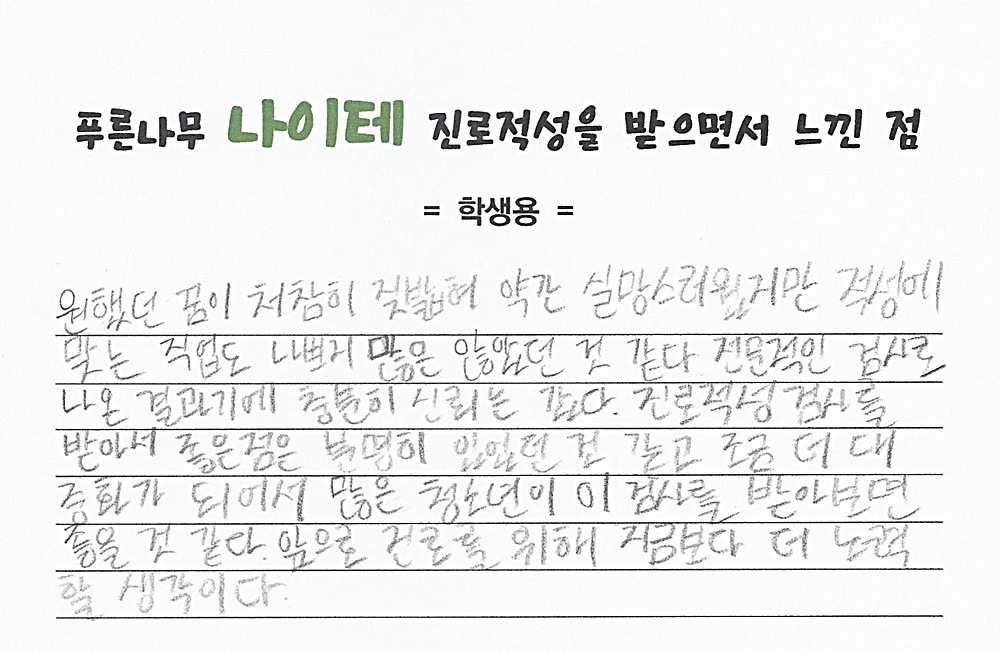 푸른나무 나이테 진로적성을 받으면서 느낀 점
= 학생용 =
원했던 꿈이 처참히 짖밟혀 약간 실망스러웠지만 적성에
맞는 직업도 나쁘지 많은 않았던 것 같다. 전문적인 검사로
나온 결과기에 충분히 신뢰는 갔다. 진로적성 검사를
받아서 좋은점은 분명히 있었던 건 같고 조금 더 대
중화가 되어서 많은 청소년이 이 검사를 받아보면
좋을 것 같다. 앞으로 진로를 위해 지금보다 더 노력
할 생각이다.